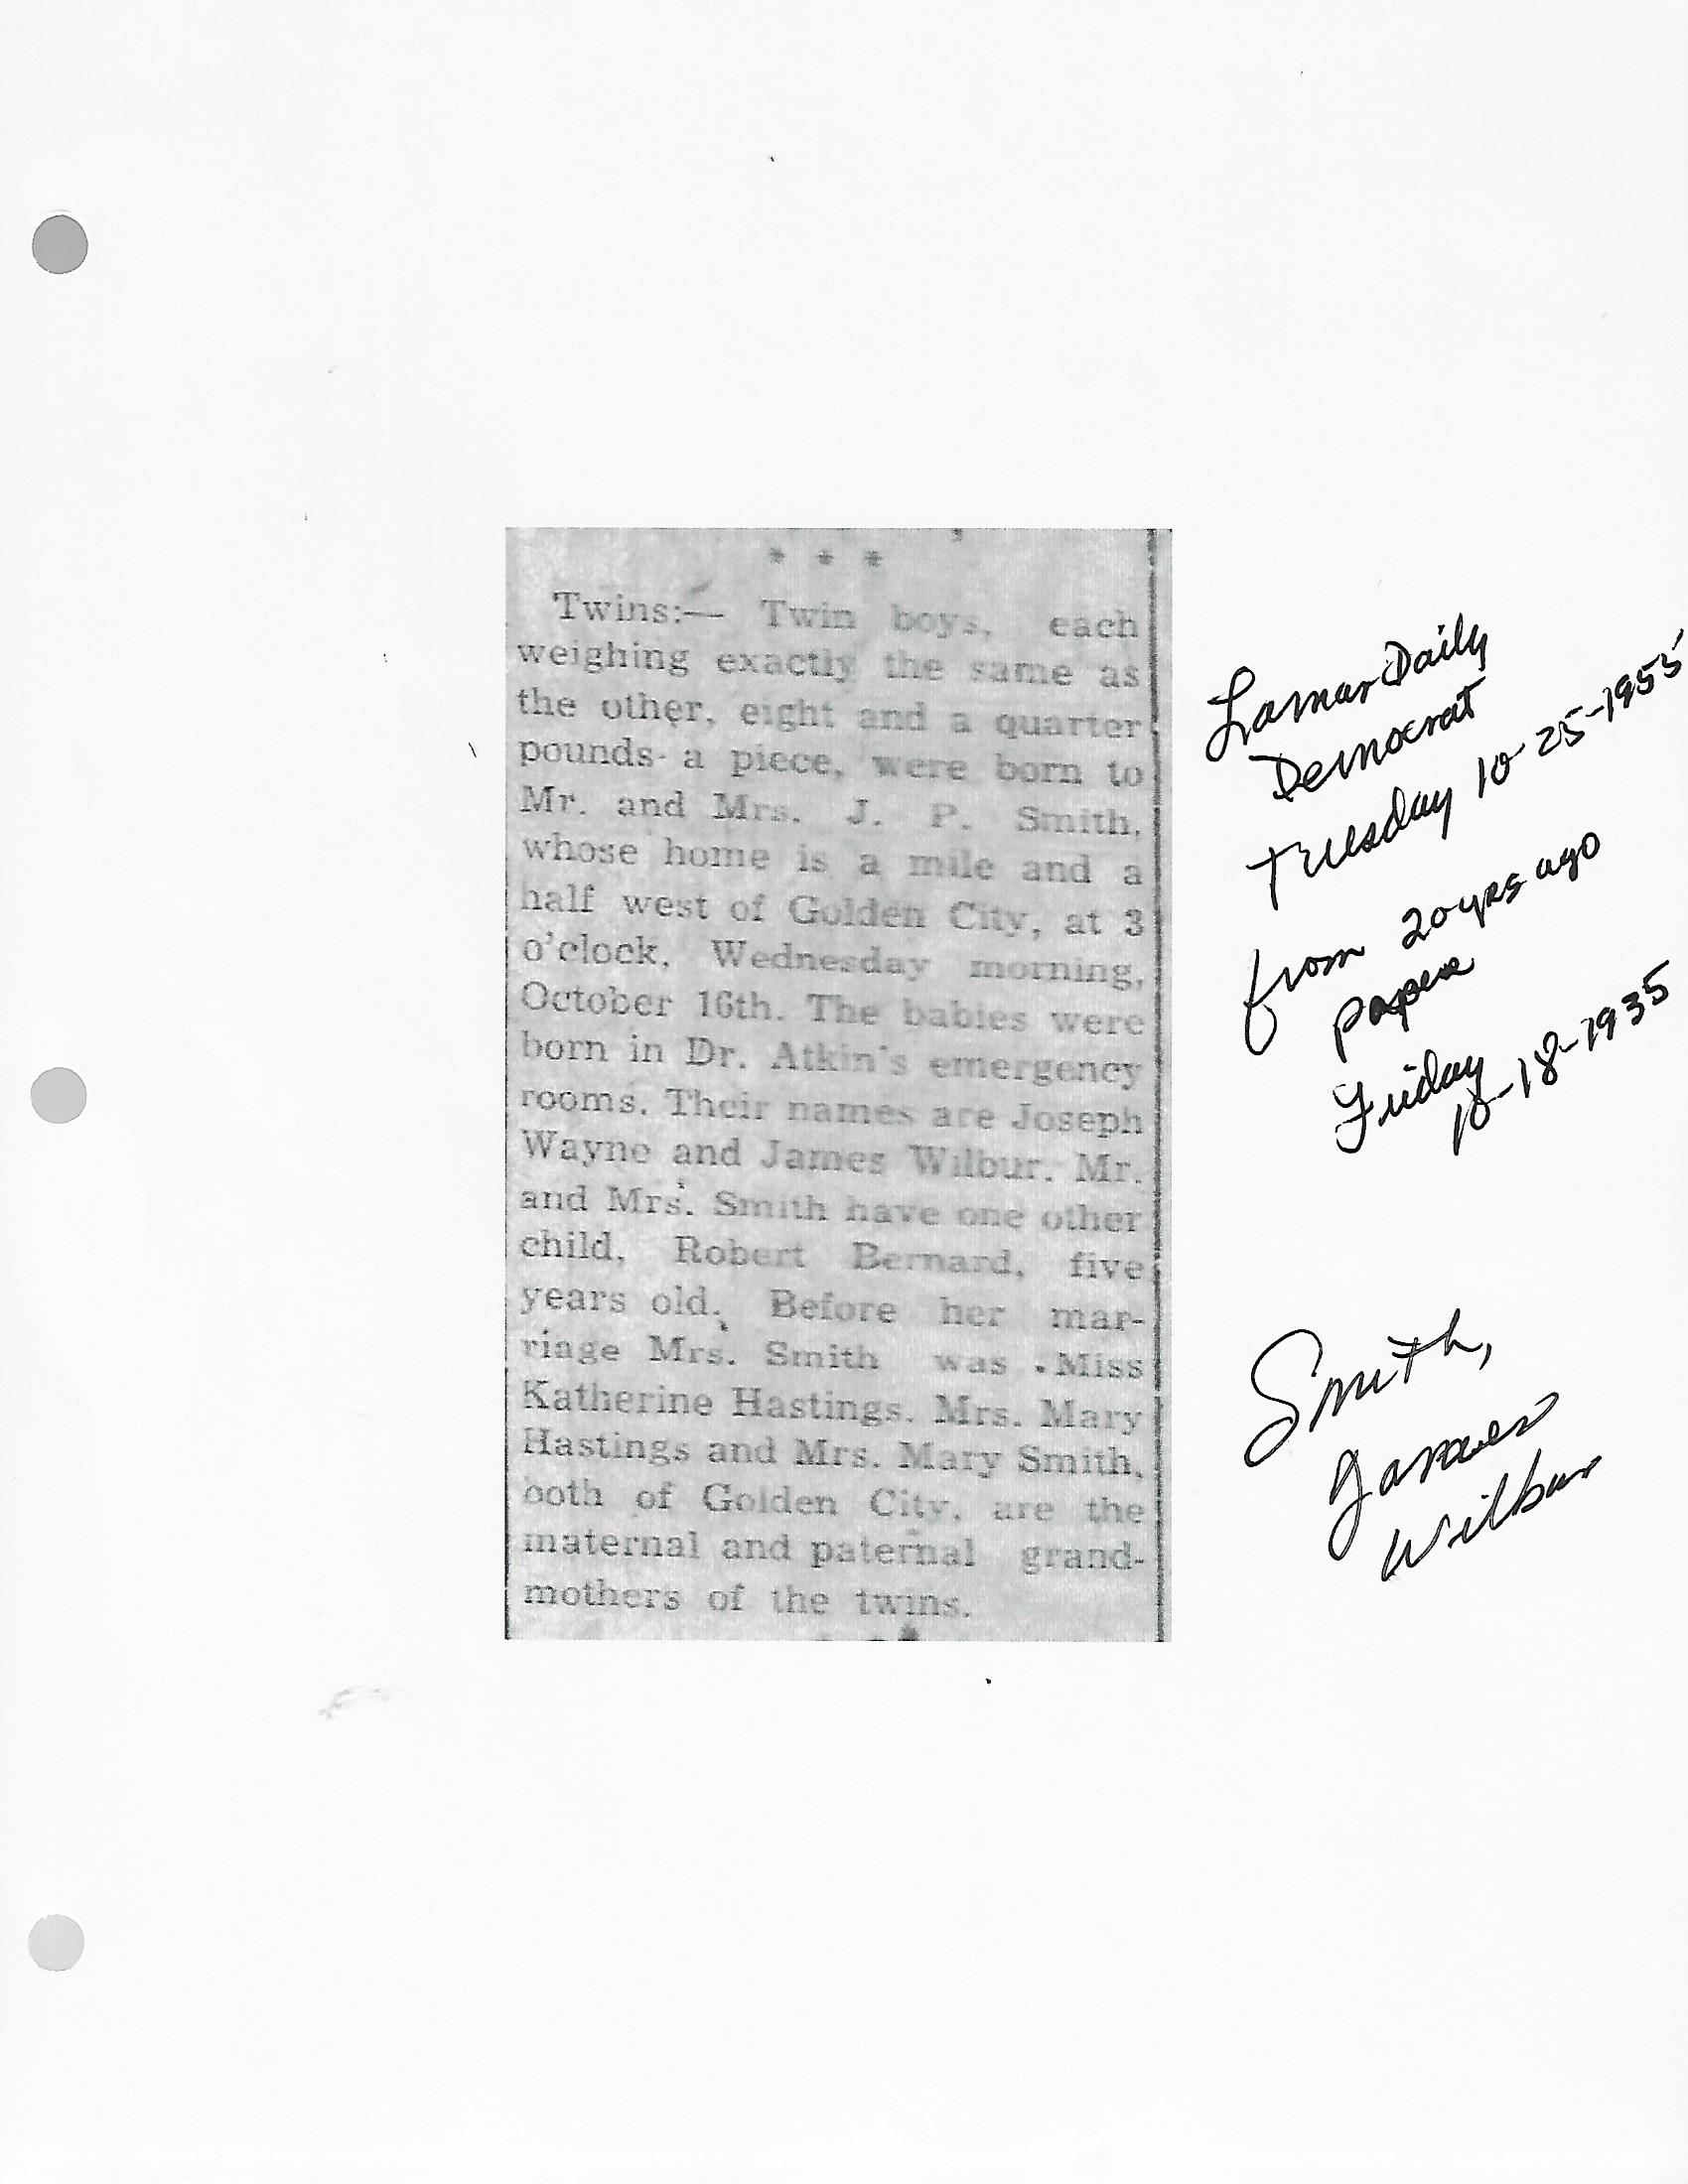 * * *
Twins:— Twin boys, each
weighing exactly the same as
the other, eight and a quarter
pounds a piece, were born to
Mr. and Mrs. J. P. Smith,
whose home is a mile and a
half west of Golden City, at 3
o'clock, Wednesday morning,
October 16th. The babies were
born in Dr. Atkin's emergency
rooms. Their names are Joseph
Wayne and James Wilbur. Mr.
and Mrs. Smith have one other
child, Robert Bernard, five
years old. Before her mar-
riage Mrs. Smith was Miss
Katherine Hastings. Mrs. Mary
Hastings and Mrs. Mary Smith,
both of Golden City, are the
maternal and paternal grand-
mothers of the twins.
Lamar Daily
Democrat
Tuesday 10-25-1955
from 20 yrs ago
paper
Friday
10-18-1935
Smith,
James
Wilbur